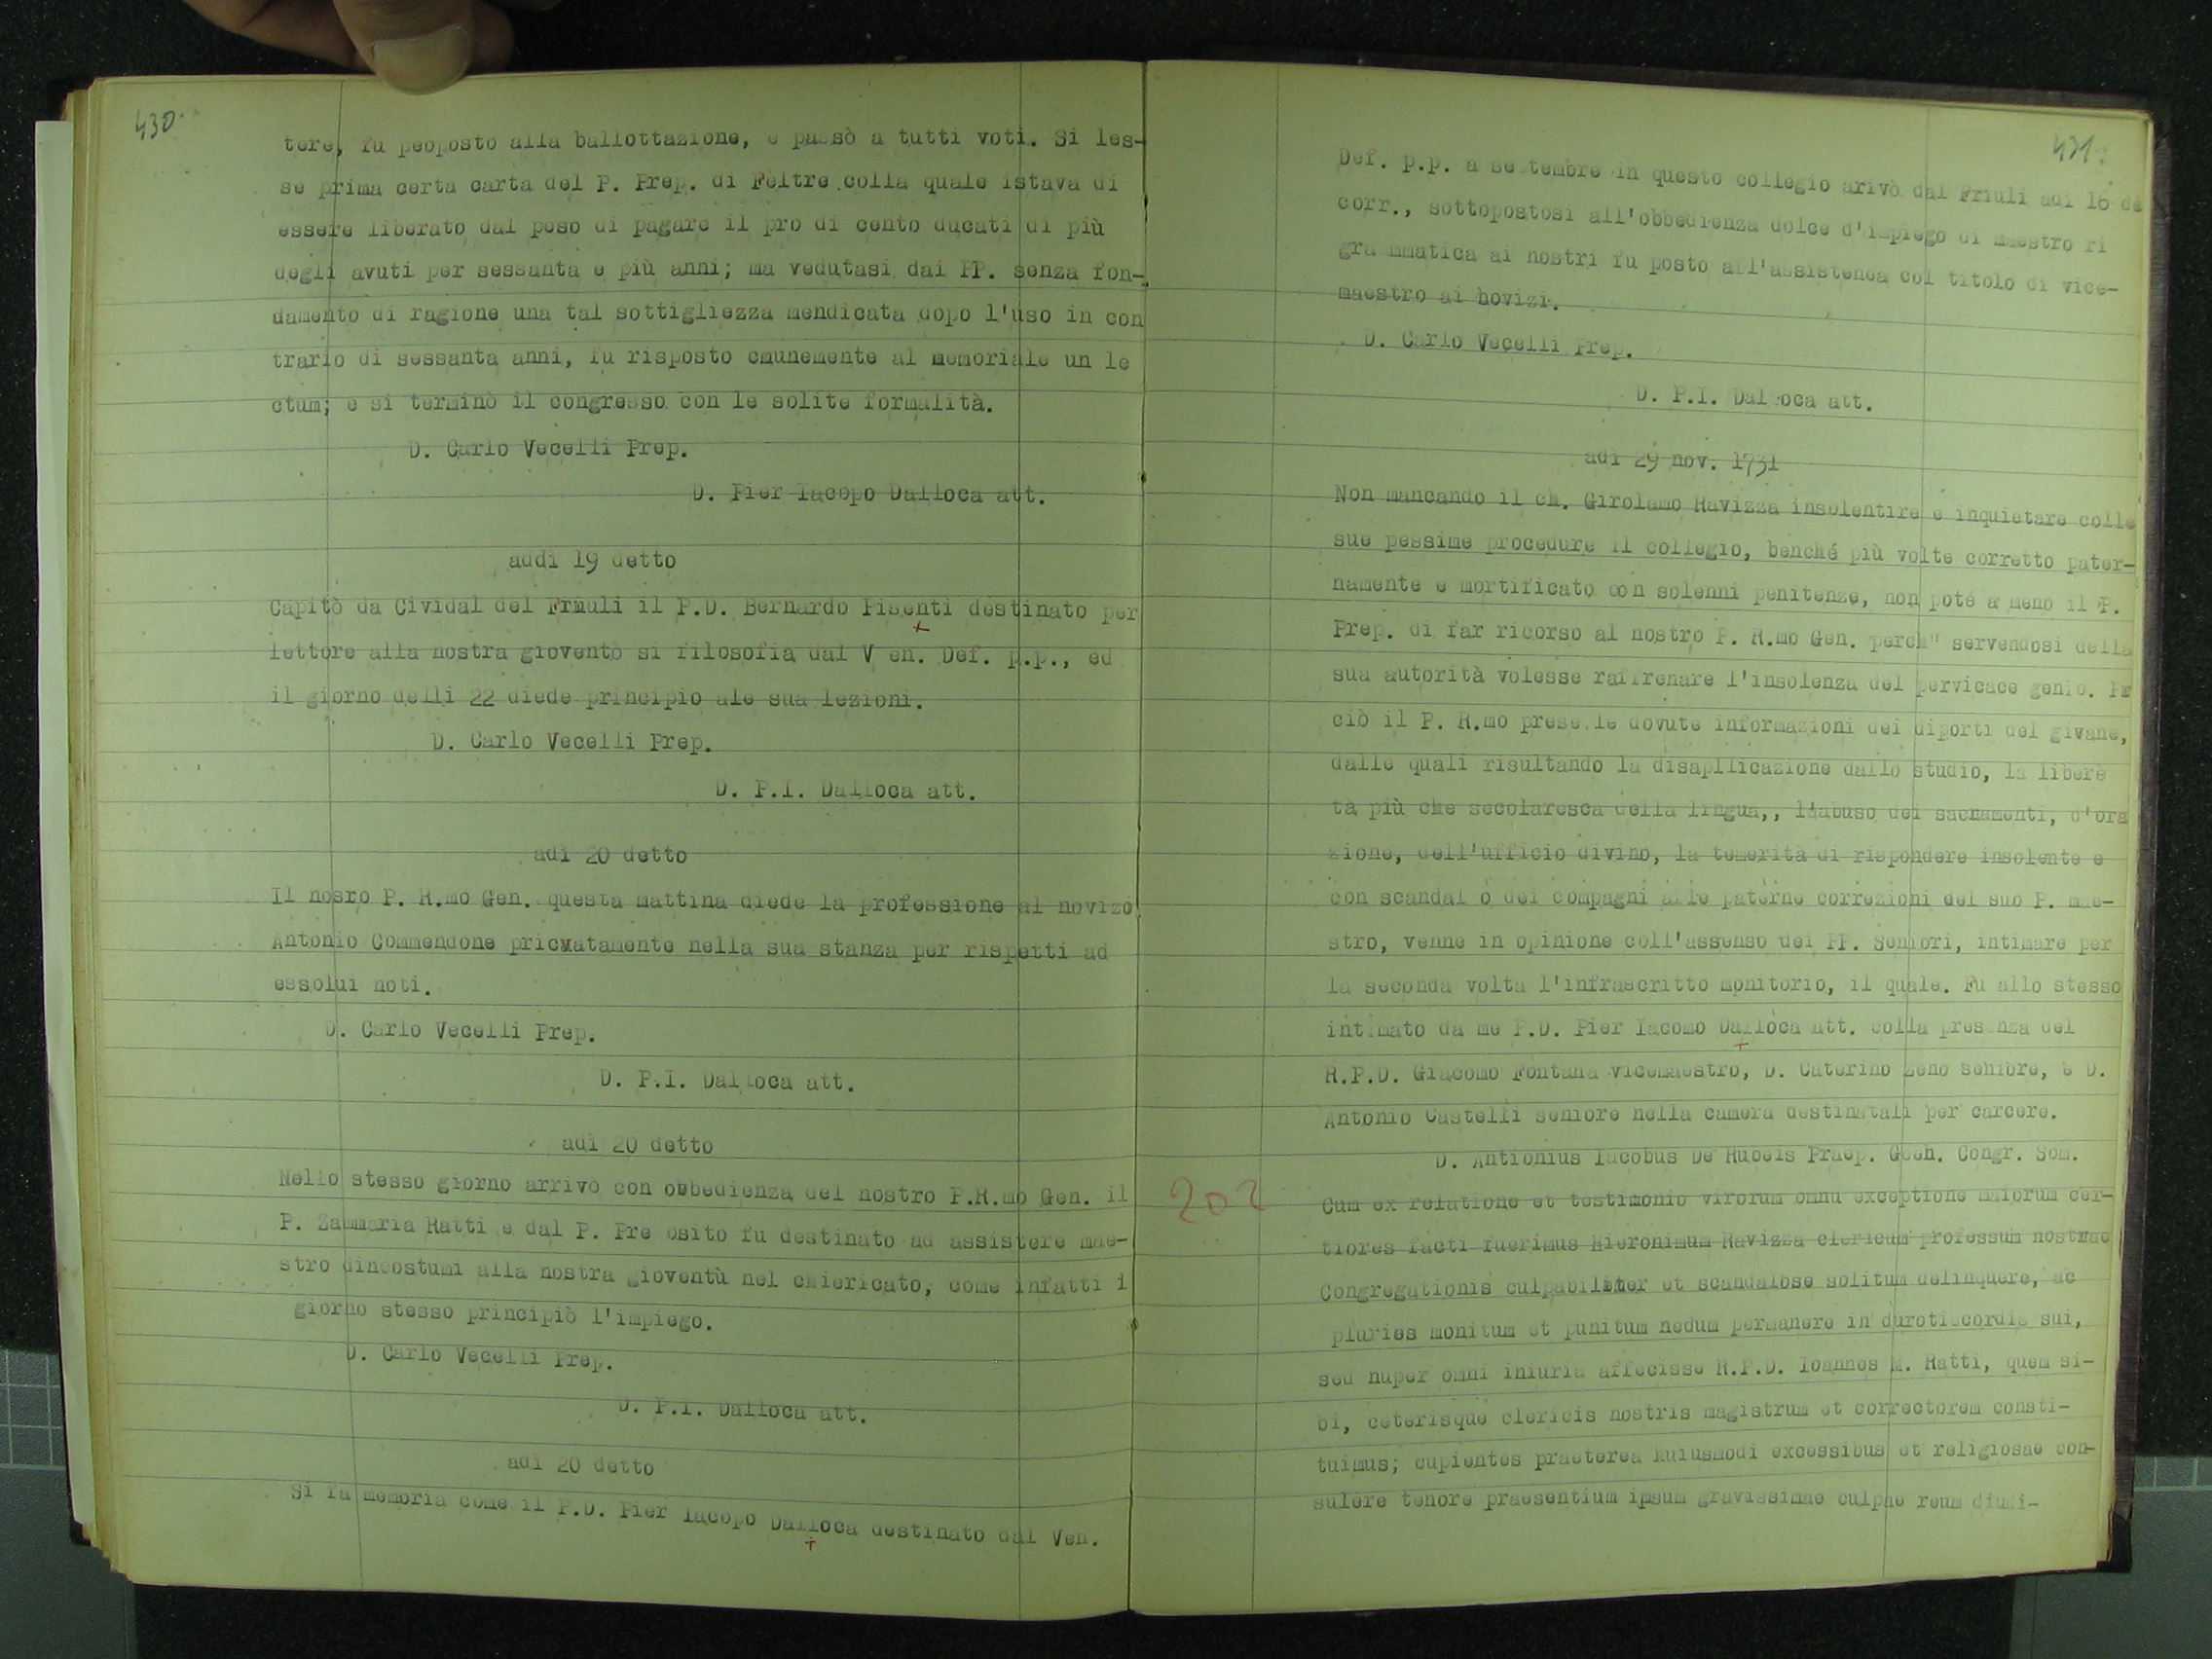 430.
tere, fu peoposto alla ballottazione, e passò a tutti voti. Si les-
se prima certa carta del P. Prep. di Feltre colla quale istava di
essere liberato dal peso di pagare il pro di cento ducati di più
degli avuti per sessanta e più anni; ma vedutasi dai PP. senza fon-
damento di ragione una tal sottigliezza mendicata dopo l'uso in con
trario di sessanta anni, fu risposto cmunemente al memoriale un le
ctum; e si terminò il congresso con le solite formalità.
D. Carlo Vecelli Prep.
D. Pier Iacopo Dalloca att.
addì 19 detto
Capitò da Cividal del Friuli il P.D. Bernardo Pisenti destinato per
lettore alla nostra gioventò si filosofia dal V en. Def. p.p., ed
il giorno delli 22 diede principio ale sua lezioni.
D. Carlo Vecelli Prep.
D. P.I. Dalloca att.
adì 20 detto
Il nosro P. R.mo Gen. questa mattina diede la professione al novizo
Antonio Commendone pricvatamente nella sua stanza per rispetti ad
essolui noti.
D. Carlo Vecelli Prep.
D. P.I. Dalloca att.
adì 20 detto
Nello stesso giorno arrivò con obbedienza del nostro P.R.mo Gen. il
P. Zammaria Ratti e dal P. Pre osito fu destinato ad assistere mae-
stro dincostumi alla nostra gioventù nel chiericato, come infatti i
giorno stesso principiò l'impiego.
D. Carlo Vecelli Prep.
D. P.I. Dalloca att.
adì 20 detto
Si fa memoria come il P.D. Pier Iacopo Dalloca destinato dal Ven.
431.
Def. p.p. a settembre in questo collegio arivò dal Friuli adì 16 de
corr., sottopostosi all'obbedienza dolce d'impiego di maestro ri
gra mmatica ai nostri fu posto all'assistenea col titolo di vice-
maestro ai hovizi.
D. Carlo Vecelli Prep.
D. P.I. Dalloca att.
adì 29 nov. 1731
Non mancando il ch. Girolamo Ravizza insolentire e inquietare colle
sue pessime procedure il collegio, benché più volte corretto pater-
namente e mortificato con solenni penitenze, non poté a meno il P.
Prep. di far ricorso al nostro P. R.mo Gen. perch" servendosi della
sua autorità volesse raffrenare l'insolenza del pervicace genio. Pe
ciò il P. R.mo prese le dovute informazioni dei diporti del givane,
dalle quali risultando la disapllicazione dallo studio, la liberè
tà più che secolaresca della lingua,, l'abuso dei sacramenti, d'ora
zione, dell'ufficio divino, la temerità di rispondere insolente e
con scandal o dei compagni alle paterne correzioni del suo P. mae-
stro, venne in opinione coll'assenso dei PP. Seniori, intimare per
la seconda volta l'infrascritto monitorio, il quale. Fu allo stesso
intimato da me P.D. Pier Iacomo Dalloca att. colla presenza del
R.P.D. Giacomo Fontana vicemaestro, D. Caterino Zeno senibre, e D.
Antonio Castelli seniore nella camera destinatali per carcere.
D. Antionius Iacobus De Rubeis Praep. Geeh. Congr. Som.
202
Cum ex relatione et testimonio virorum omnu exceptione maiorum cer-
tiores facti fuerimus Hieronimum Ravizza clericum professum nostrae
Congregationis culpabiliter et scandalose solitum delinquere, ac
pluries monitum et punitum nedum permanere in durotiecordis sui,
sed nuper omni iniuria affecisse R.P.D. Ioannes M. Ratti, quem si-
bi, ceterisque clericis nostris magistrum et correctorem consti-
tuimus; cupientes praeterea huiusmodi excessibus et religiosae con-
sulere tenore praesentium ipsum gravissimae culpae reum diudi-